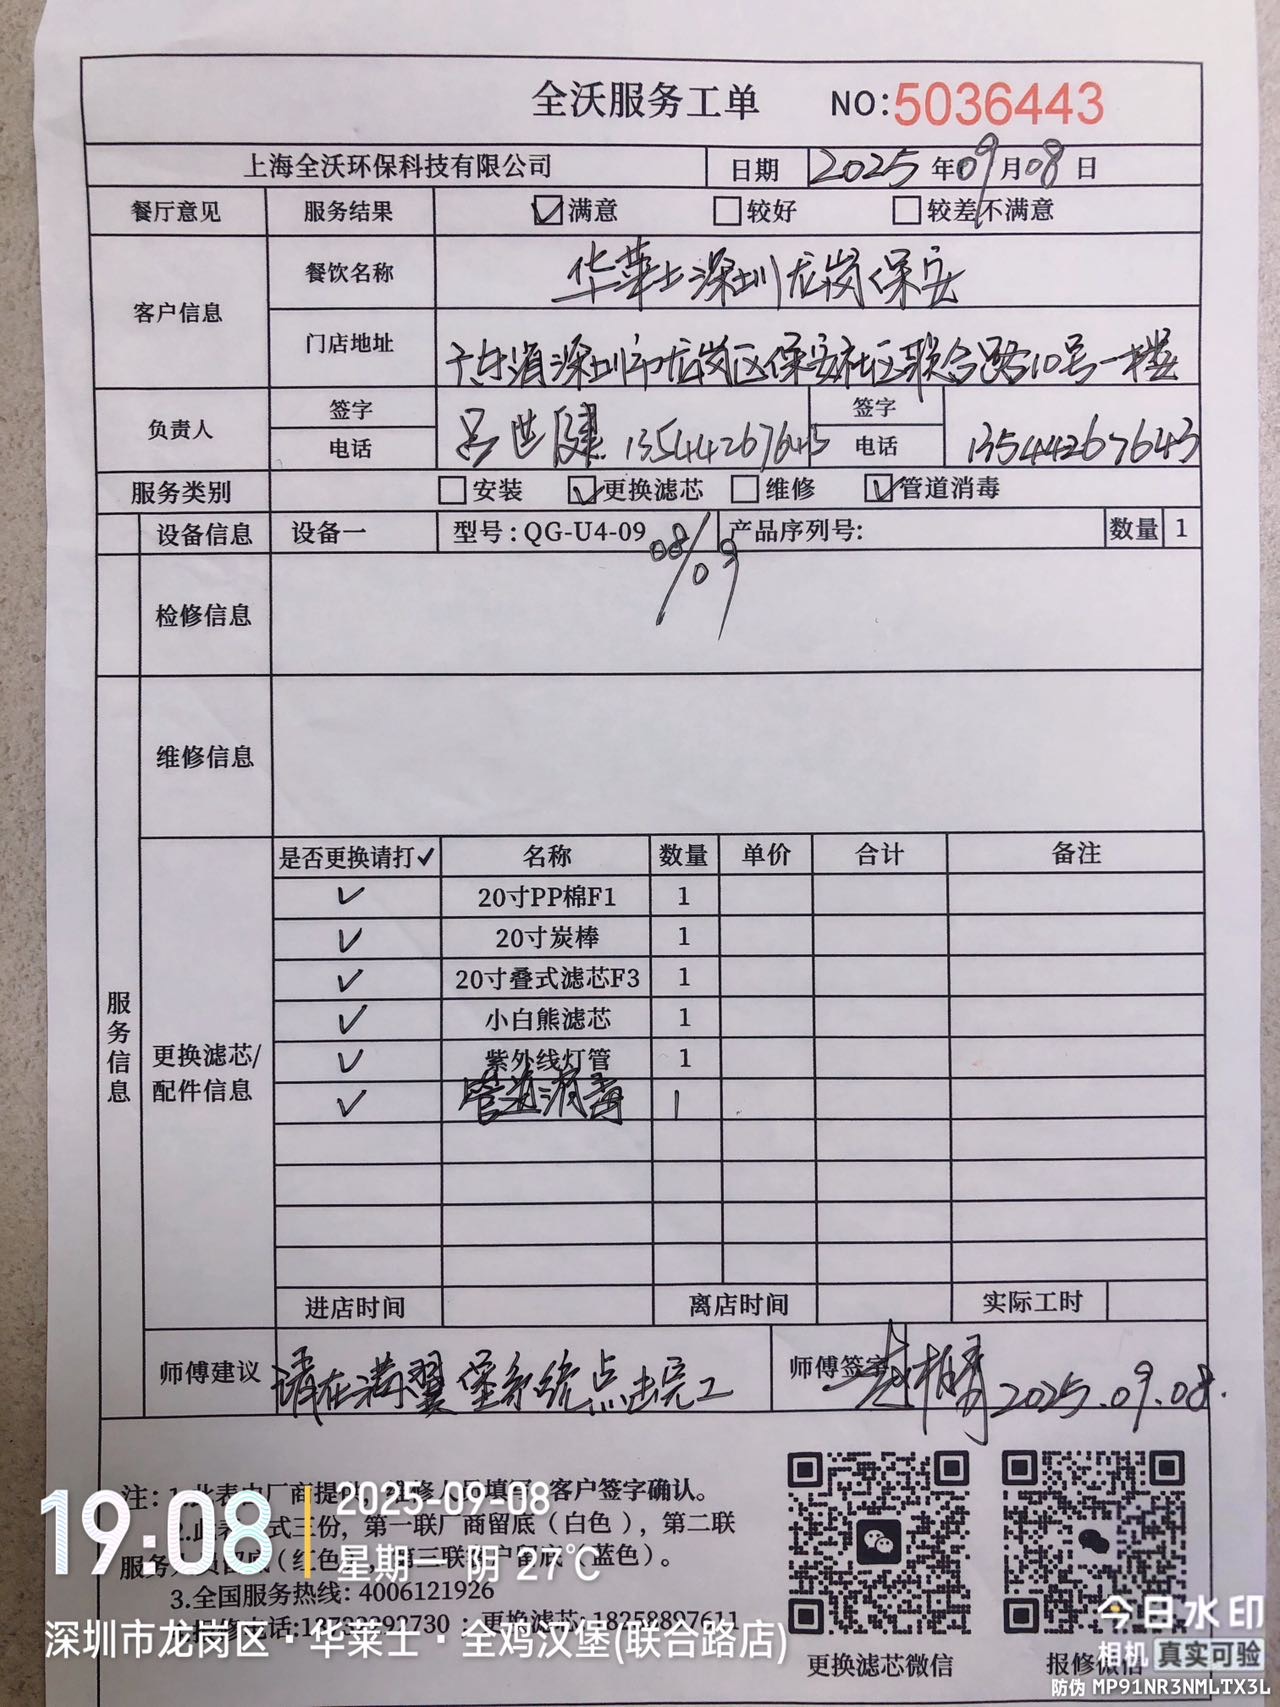 全沃服务工单 NO:5036443
上海全沃环保科技有限公司 日期 2025 年 09 月 08 日
餐厅意见 服务结果 ☑满意 □较好 □较差不满意
客户信息 餐饮名称 华莱士深圳龙岗保安
门店地址 广东省深圳市龙岗区保安社区联合路10号一楼
负责人 签字 吕世健 签字
电话 13544267643 电话 13544267643
服务类别 □安装 ☑更换滤芯 □维修 ☑管道消毒
设备信息 设备一 型号:QG-U4-09 产品序列号: 数量 1
08/09
检修信息
维修信息
服务信息
更换滤芯/配件信息
是否更换请打✓ 名称 数量 单价 合计 备注
✓ 20寸PP棉F1 1
✓ 20寸炭棒 1
✓ 20寸叠式滤芯F3 1
✓ 小白熊滤芯 1
✓ 紫外线灯管 1
✓ 管道消毒 1
进店时间 离店时间 实际工时
师傅建议 请在满翼堡系统点击完工 师傅签字 2025.09.08.
注: 1.此表由厂商提供, 维修人员填写, 客户签字确认。
2.此表一式三份, 第一联厂商留底 (白色), 第二联
服务人员留底 (红色), 第三联客户留底 (蓝色)。
3.全国服务热线: 4006121926
更换滤芯: 18258897611
更换滤芯微信 报修微信
19:08 2025-09-08
星期一 阴 27℃
深圳市龙岗区·华莱士·全鸡汉堡(联合路店)
今日水印
相机 真实可验
防伪 MP91NR3NMLTX3L